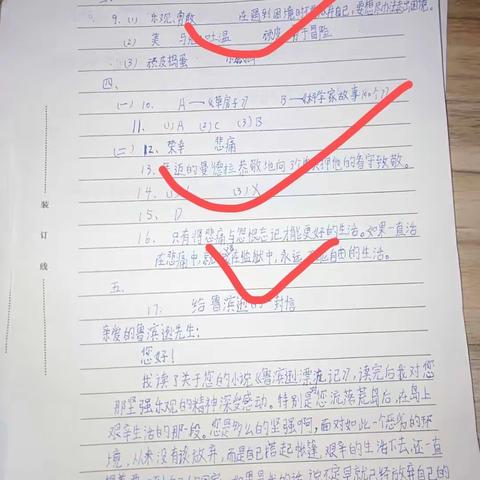 9. (1) 乐观、勇敢 在遇到困境时不放弃自己,要想尽办法走出困境。
(2) 美 乐于冒险
(3) 顽皮捣蛋
四、
(一) 10. A—《草房子》 B—《科学家故事100个》
11. (1)A (2)C (3)B
(二) 12. 荣幸 悲痛
13. 年迈的曼德拉恭敬地向 关押他的看守致敬。
14. (3)X
15. D
16. 只有将悲痛与怨恨忘记才能更好的生活。如果一直活
在悲痛中,就 在监狱中,永远 自由的生活。
五、
17. 给鲁滨逊的一封信
亲爱的鲁滨逊先生:
您好!
我读了关于您的小说《鲁滨逊漂流记》,读完后我对您
那坚强乐观的精神深受感动。特别是您流落荒岛后,在岛上
艰辛生活的那一段。您是多么的坚强啊,面对如此一个恶劣的环
境,从来没有该放弃,而是自己搭起帐篷,艰辛的生活下去,还一直
说不定早就已经放弃自己的
装订线